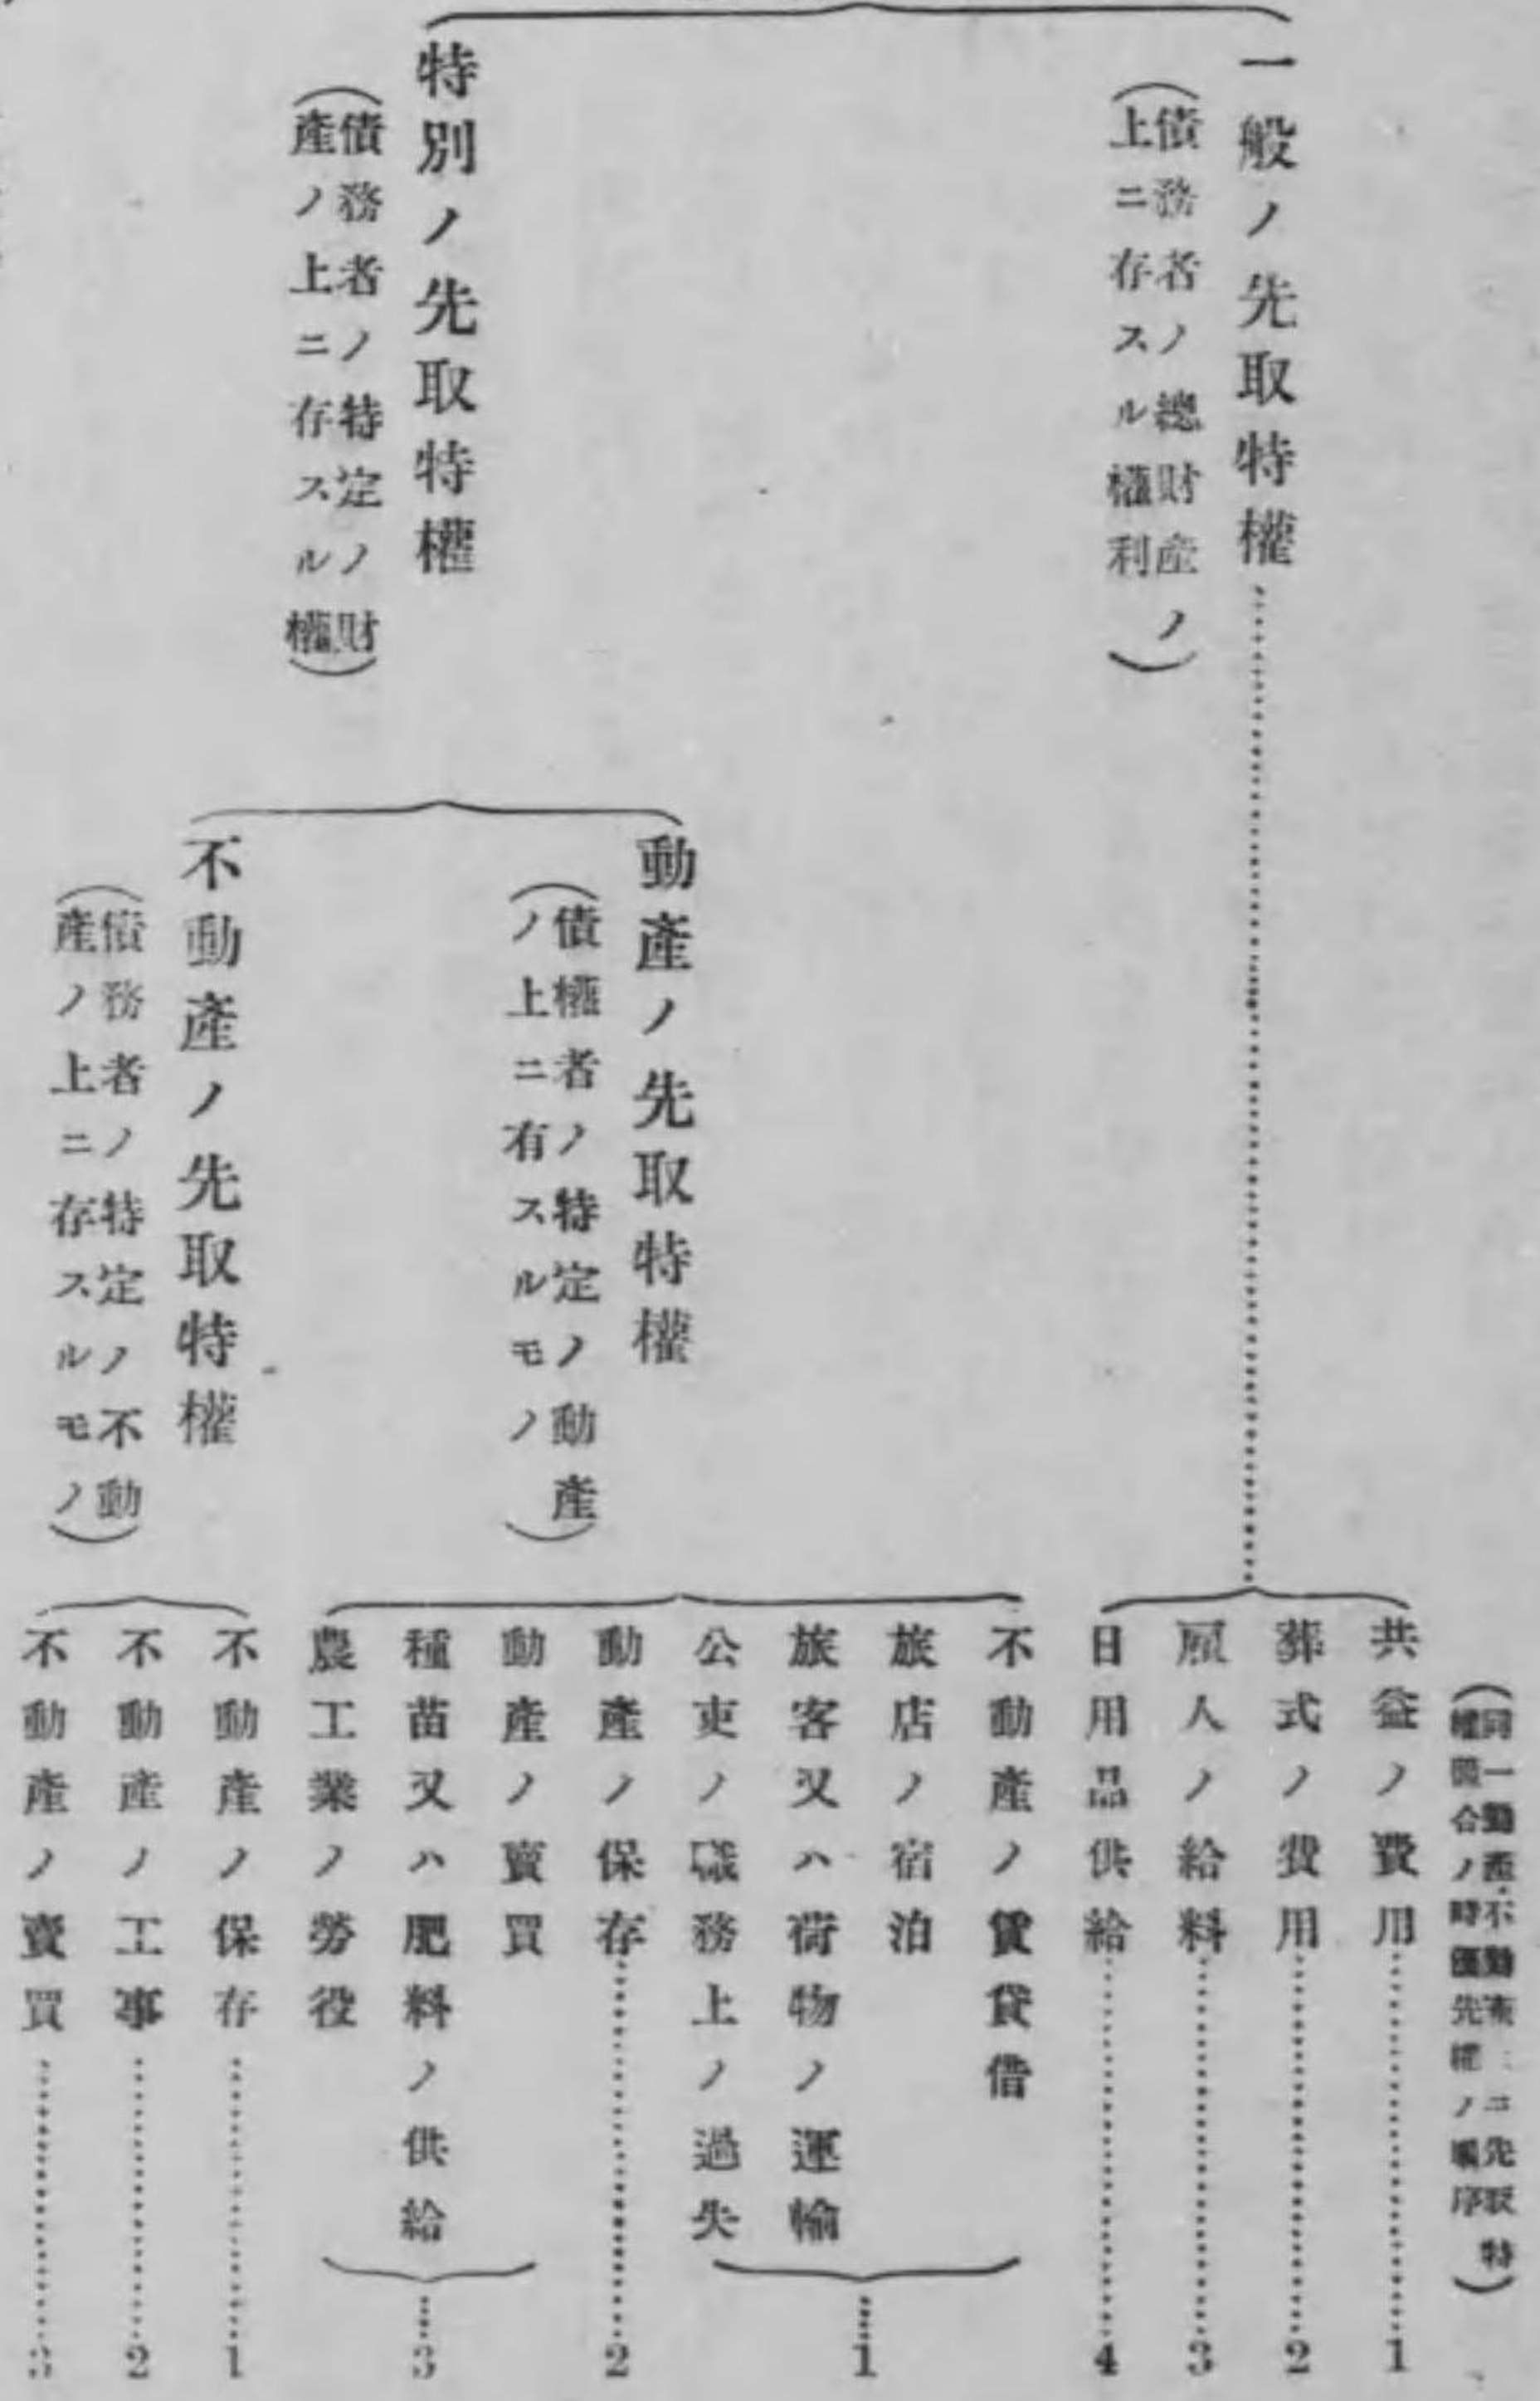 一般ノ先取特權
(債務者ノ總財産ノ
上ニ存スル權利)
特別ノ先取特權
(債務者ノ特定ノ財
產ノ上ニ存スル權)
動產ノ先取特權
(債權者ノ特定ノ動產
ノ上ニ有スルモノ)
不動產ノ先取特權
(債務者ノ特定ノ不動
產ノ上ニ存スルモノ)
(同一動產・不動產ニ先取特
權競合ノ時優先權ノ順序)
共益ノ費用……1
葬式ノ費用……2
雇人ノ給料……3
日用品供給……4
不動產ノ賃貸借
旅店ノ宿泊
旅客又ハ荷物ノ運輸
公吏ノ職務上ノ過失
……1
動產ノ保存……2
動產ノ賣買
種苗又ハ肥料ノ供給
農工業ノ勞役
……3
不動產ノ保存……1
不動產ノ工事……2
不動產ノ賣買……3